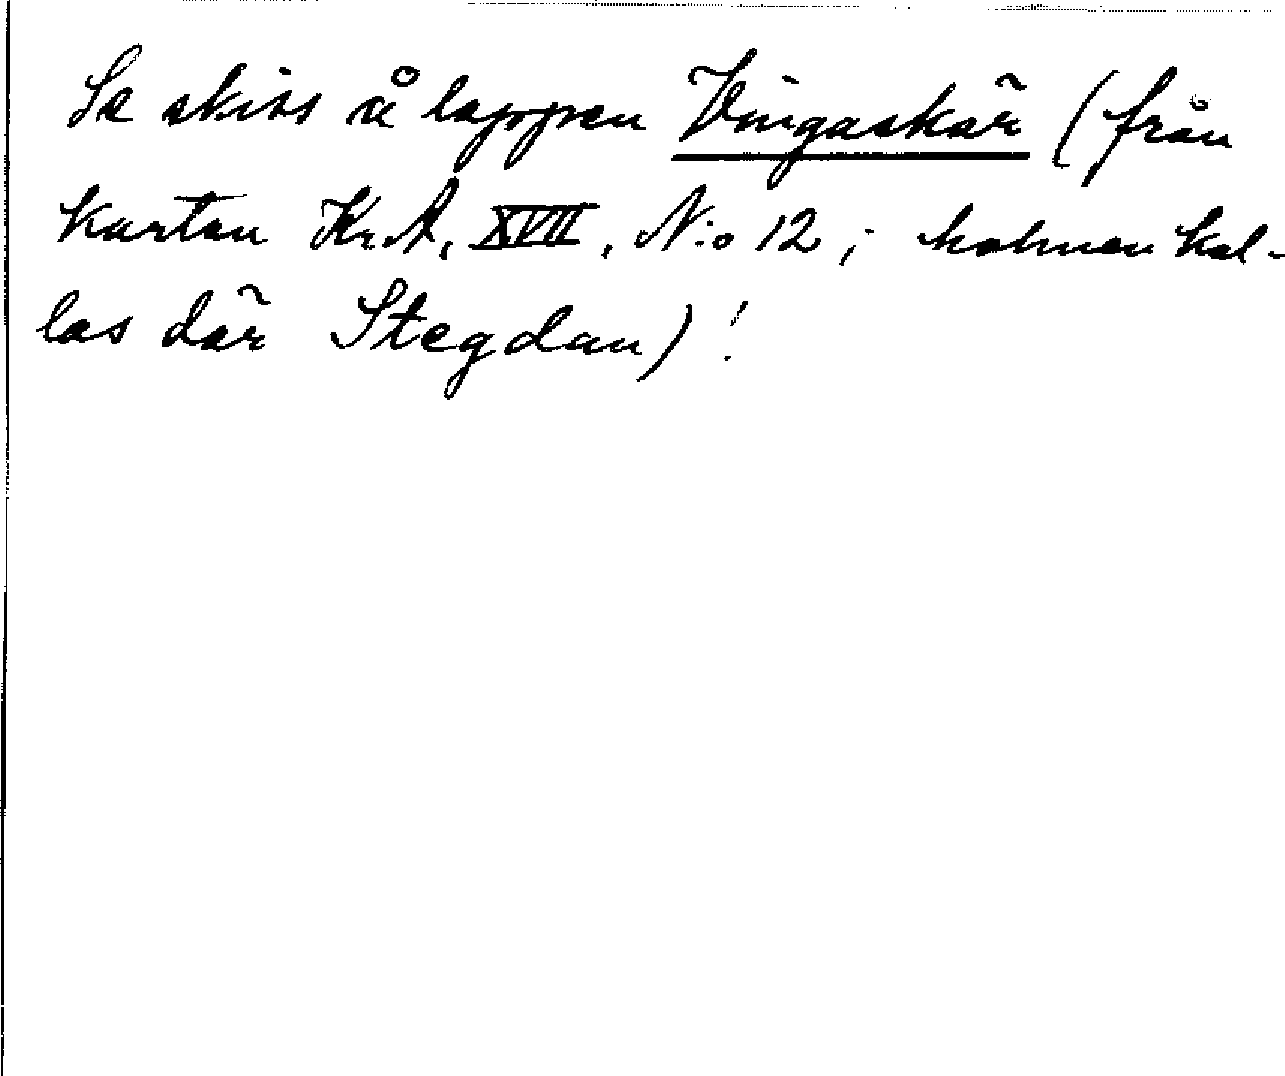 Se skiss å lappen Vingaskär (från
kartan Kr.A, XVII, N:o 12; holmen kal-
las där Stegdan)!